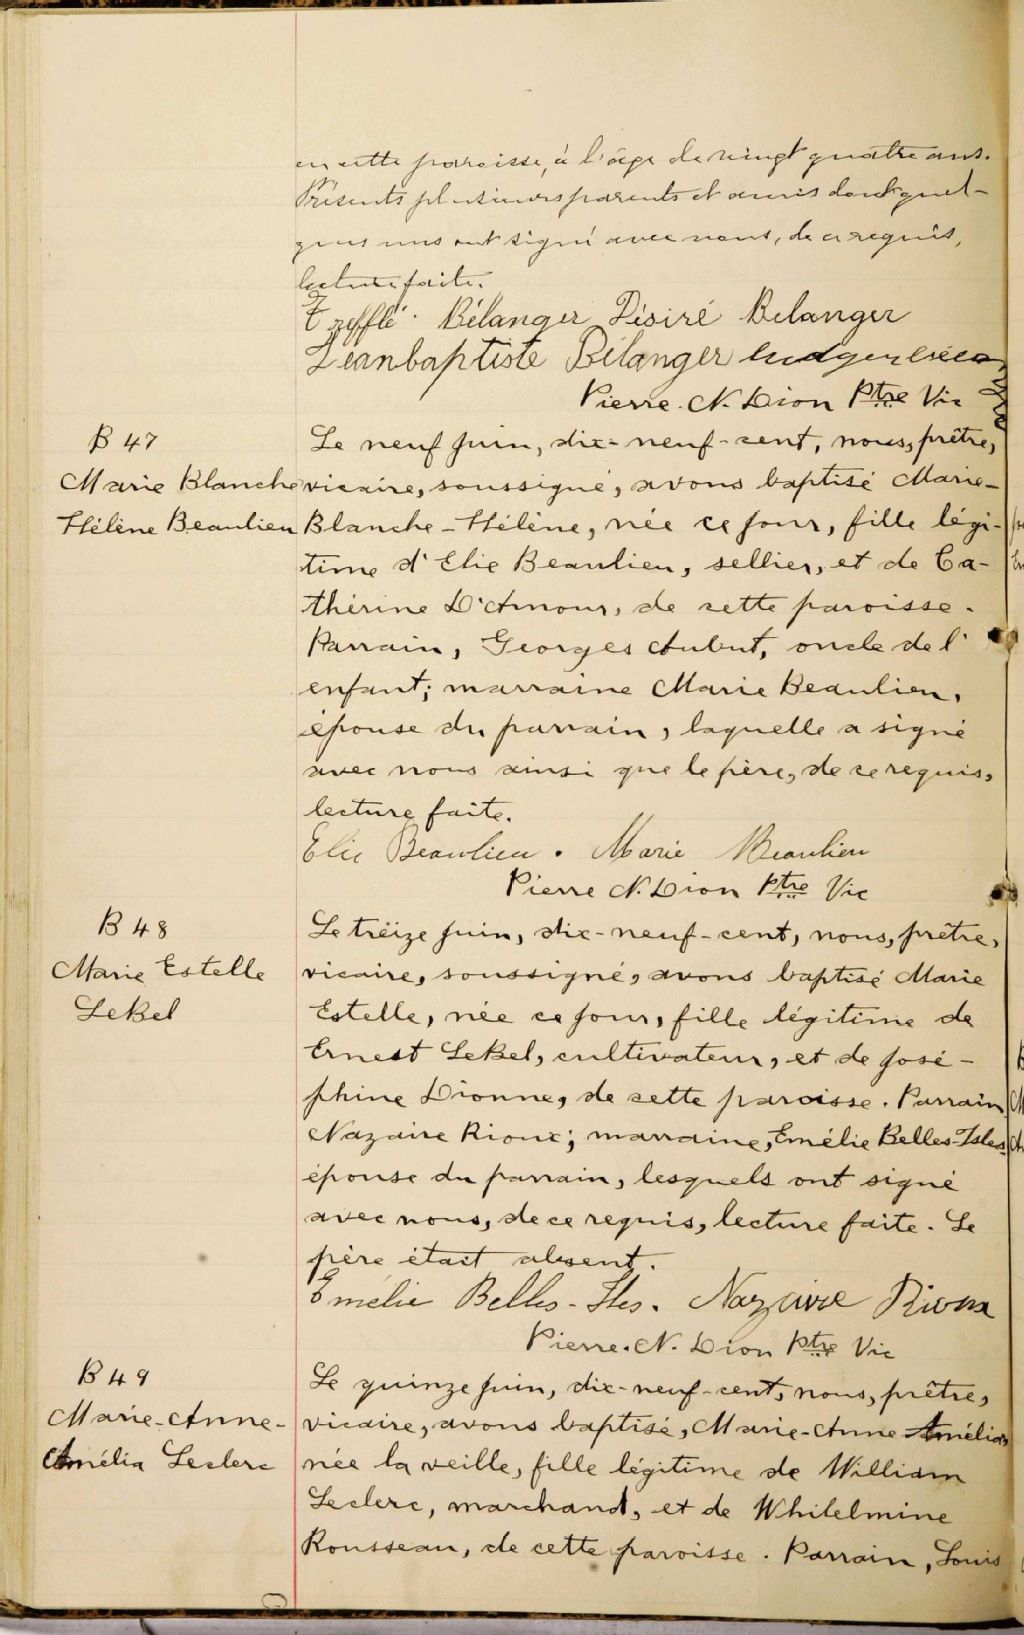 en cette paroisse, à l'âge de vingt quatre ans.
Présents plusieurs parents et amis dont quel-
ques uns ont signé avec nous, de ce requis,
lecture faite.
Bélanger Désiré Belanger
Jeanbaptiste Bélanger
Pierre. N. Dion Ptre Vic
B 47
Marie Blanche
Hélène Beaulieu
Le neuf juin, dix-neuf-cent, nous, prêtre,
vicaire, soussigné, avons baptisé Marie-
Blanche-Hélène, née ce jour, fille légi-
time d'Elie Beaulieu, sellier, et de Ca-
thérine D'Amour, de cette paroisse.
Parrain, Georges Aubut, oncle de l'
enfant; marraine Marie Beaulieu,
épouse du parrain, laquelle a signé
avec nous ainsi que le père, de ce requis,
lecture faite.
Elie Beaulieu. Marie Beaulieu
Pierre N. Dion Ptre Vic
B 48
Marie Estelle
LeBel
Le treize juin, dix-neuf-cent, nous, prêtre,
vicaire, soussigné, avons baptisé Marie
Estelle, née ce jour, fille légitime de
Ernest LeBel, cultivateur, et de José-
phine Dionne, de cette paroisse. Parrain
Nazaire Rioux; marraine, Emélie Belles-Isles
épouse du parrain, lesquels ont signé
avec nous, de ce requis, lecture faite. Le
père était absent.
Emélie Belles-Iles. Nazaire Rioux
Pierre. N. Dion Ptre Vic
B 49
Marie-Anne-
Amélia Leclerc
Le quinze juin, dix-neuf-cent, nous, prêtre,
vicaire, avons baptisé, Marie-Anne Amélia,
née la veille, fille légitime de William
Leclerc, marchand, et de Whilelmine
Rousseau, de cette paroisse. Parrain, Louis